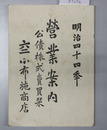 明治四十四年
營業案内
公債株式賣買業
小布施商店